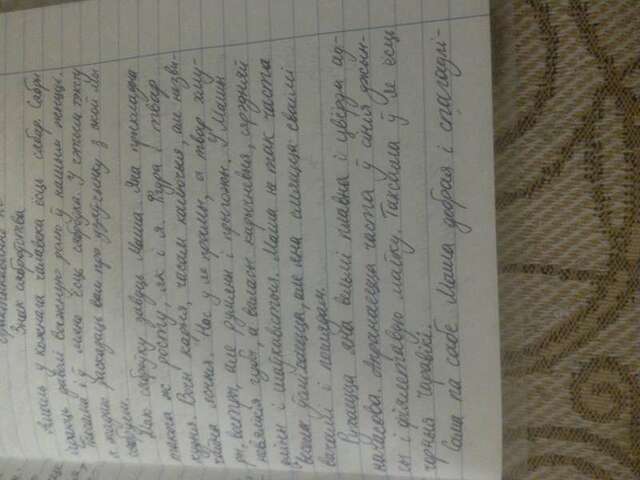 Знак сяброўства
Амаль у кожнага чалавека ёсць сябар. Сябры
іграюць даволі важную ролю ў нашым жыцці.
Таксама і ў мяне ёсць сяброўка. У гэтым тэксце
я жадаю расказаць вам пра дзяўчынку з якой мы
сябруем.
Маю сяброўку завуць Маша. Яна прыкладна
такога ж росту, як і я. Фігура і твар
худыя. Вочы карыя, часам калючыя, але незвы-
чайна ясныя. Нос у яе прамы, а твар хму-
ры, востры, але румяны і прыгожы. У Машы
невялікія губы, а валасы карычневыя, сярэдняй
даўжыні і шаўкавістыя. Маша не так часта
весела ўсміхаецца, але яна смяецца сваімі
вачамі і поглядам.
Рухаецца яна вельмі плавна і цвёрда ад-
начасова. Апранаецца часта ў сінія джын-
сы і фіялетавую майку. Таксама ў яе ёсць
чорныя чаравікі.
Сама па сабе Маша добрая і спагадлі-